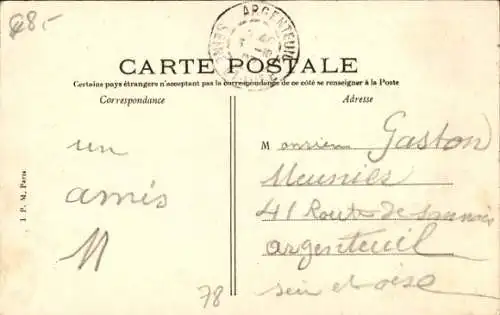 €8.-
ARGENTEUIL
CARTE POSTALE
Certains pays étrangers n'acceptant pas la correspondance de ce côté se renseigner à la Poste
Correspondance
Adresse
un
amis
M
J. P. M. Paris
Monsieur Gaston
Meunier
41 Route de Sannois
argenteuil
sein et oise
78